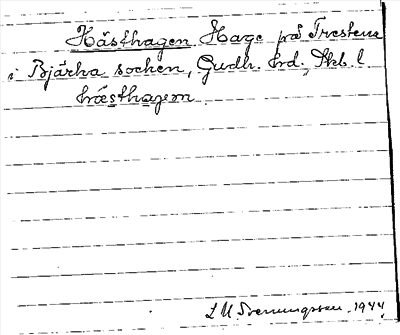 Hästhagen. Hage på Trestena
i Bjärka socken, Gudh. hd., Skb. l
hæsthagem
L M Svenungsson. 1944.